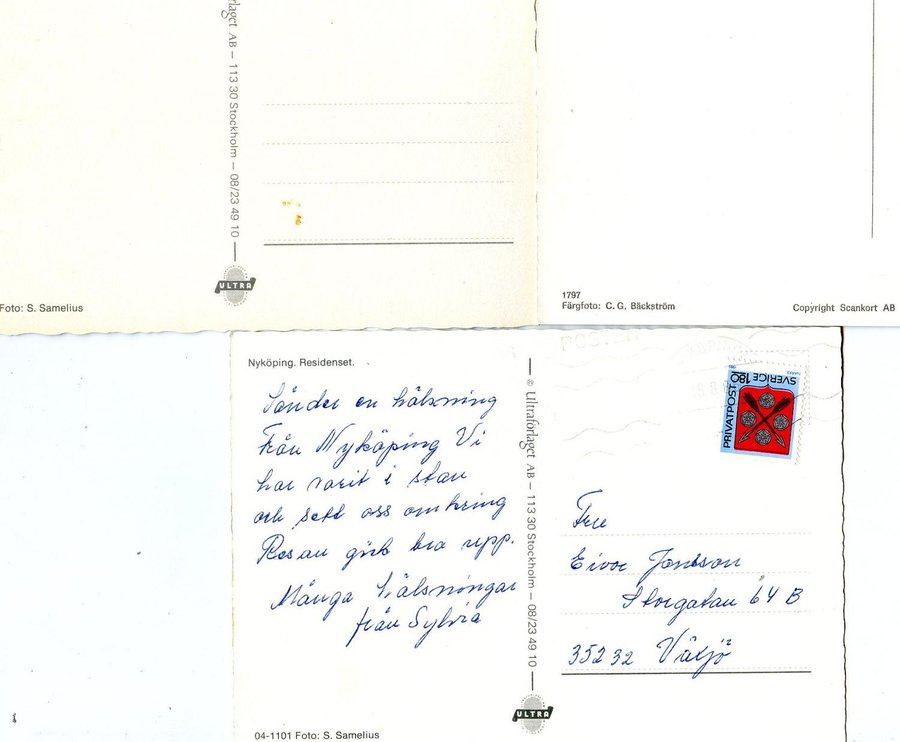 rlaget AB – 113 30 Stockholm – 08/23 49 10
ULTRA
Foto: S. Samelius
1797
Färgfoto: C. G. Bäckström
Copyright Scankort AB
Nyköping. Residenset.
Sänder en hälsning
Från Nyköping Vi
har varit i stan
och sett oss omkring
Resan gick bra upp.
Många Hälsningar
från Sylvia
04-1101 Foto: S. Samelius
© Ultraförlaget AB – 113 30 Stockholm – 08/23 49 10
ULTRA
POSTEN
PRIVATPOST
180
SVERIGE
Fru
Jonsson
Storgatan 64 B
35232 Växjö